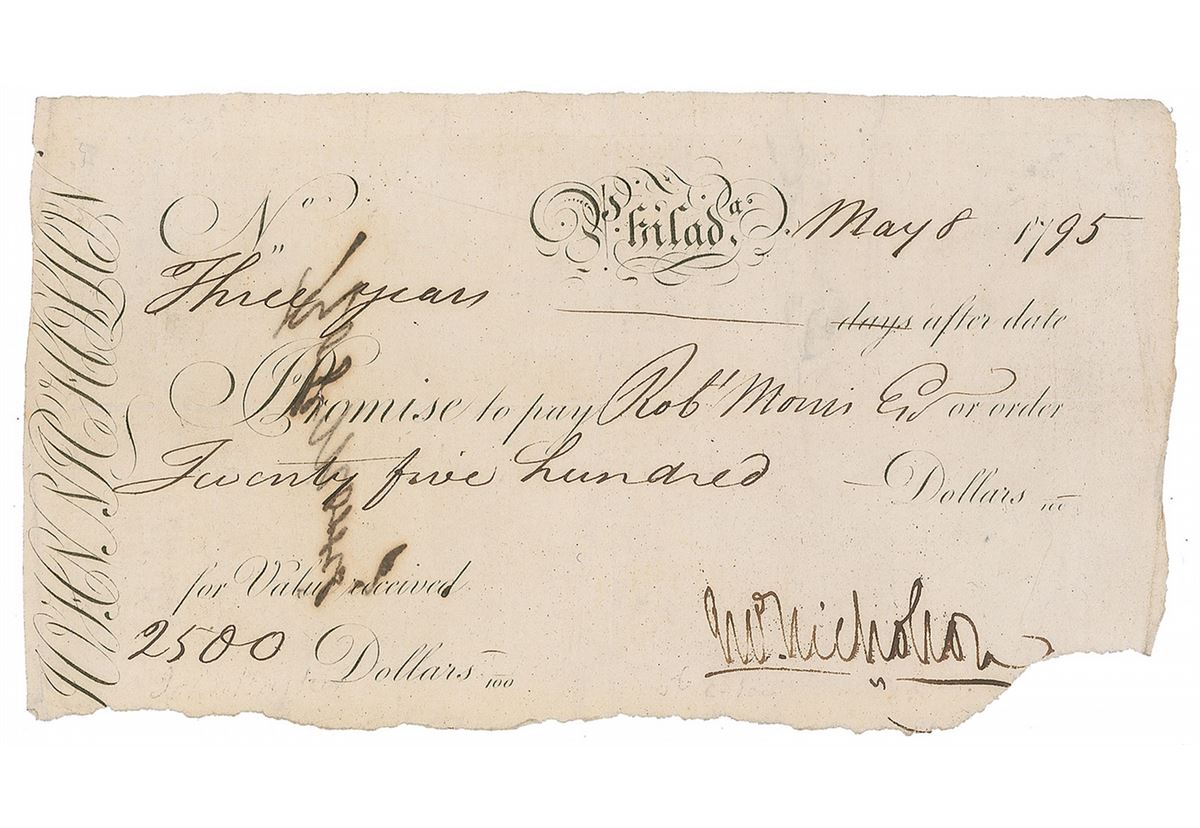 No. Philada. May 8 1795
Three years days after date
I Promise to pay Robt Morris Esqr or order
Twenty five hundred Dollars 100
for Value received
2500 Dollars 100
Jno. Nicholson
JOHN NICHOLSON